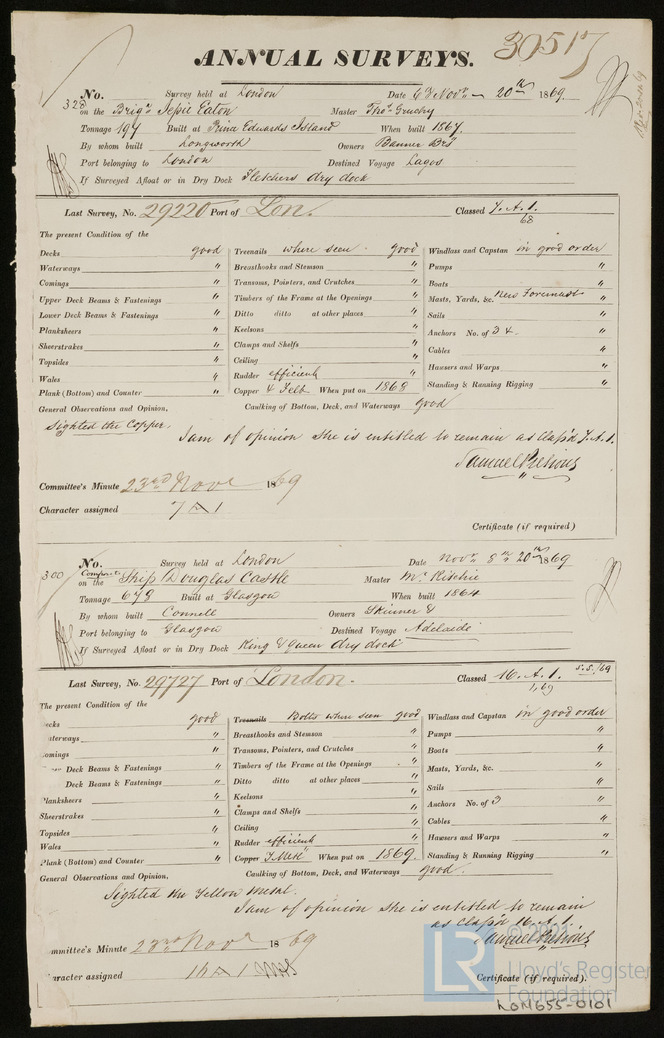 ANNUAL SURVEYS. 30517
No. 328 Survey held at London Date 6th Novr - 20th 1869.
on the Brign Jessie Eaton Master Thos. Gruchy
Tonnage 194 Built at Prince Edwards Island When built 1867.
By whom built Longworth Owners Banner Brs
Port belonging to London Destined Voyage Lagos
If Surveyed Afloat or in Dry Dock Fletchers dry dock
Last Survey, No. 29220 Port of Lon. Classed 7. A. 1.
68
The present Condition of the
Decks good Treenails where seen good Windlass and Capstan in good order
Waterways " Breasthooks and Stemson " Pumps "
Comings " Transoms, Pointers, and Crutches " Boats "
Upper Deck Beams & Fastenings " Timbers of the Frame at the Openings " Masts, Yards, &c. New Foremast "
Lower Deck Beams & Fastenings " Ditto ditto at other places " Sails "
Planksheers " Keelsons " Anchors No. of 3 4 "
Sheerstrakes " Clamps and Shelfs " Cables "
Topsides " Ceiling " Hawsers and Warps "
Wales " Rudder efficient Standing & Running Rigging "
Plank (Bottom) and Counter " Copper & Felt When put on 1868
General Observations and Opinion, Caulking of Bottom, Deck, and Waterways good
Sighted the Copper.
I am of opinion she is entitled to remain as Class'd 7. A. 1.
Samuel Pretious
Committee's Minute 23rd Novr 1869
Character assigned 7 A 1
Certificate (if required)
No. 300 Survey held at London Date Novr 8th 20th 1869
Composite
on the Ship Douglas Castle Master Mr. Ritchie
Tonnage 678 Built at Glasgow When built 1864
By whom built Connell Owners Skinner &
Port belonging to Glasgow Destined Voyage Adelaide
If Surveyed Afloat or in Dry Dock King & Queen dry dock
Last Survey, No. 29727 Port of London. Classed 16. A. 1. S.S./69
1,69
The present Condition of the
Decks good Treenails Bolts where seen good Windlass and Capstan in good order
aterways " Breasthooks and Stemson " Pumps "
omings " Transoms, Pointers, and Crutches " Boats "
Deck Beams & Fastenings " Timbers of the Frame at the Openings " Masts, Yards, &c. "
Deck Beams & Fastenings " Ditto ditto at other places " Sails "
Planksheers " Keelsons " Anchors No. of 3 "
Sheerstrakes " Clamps and Shelfs " Cables "
Topsides " Ceiling " Hawsers and Warps "
Wales " Rudder efficient Standing & Running Rigging "
Plank (Bottom) and Counter " Copper Y. Metl When put on 1869.
General Observations and Opinion. Caulking of Bottom, Deck, and Waterways good.
Sighted the Yellow Metal.
I am of opinion she is entitled to remain
as Class'd 16. A. 1.
Samuel Pretious
ommittee's Minute 23rd Novr 1869
aracter assigned 16 A 1
Certificate (if required).
© 2021
LR
Lloyd's Register
Foundation
LON655-0101